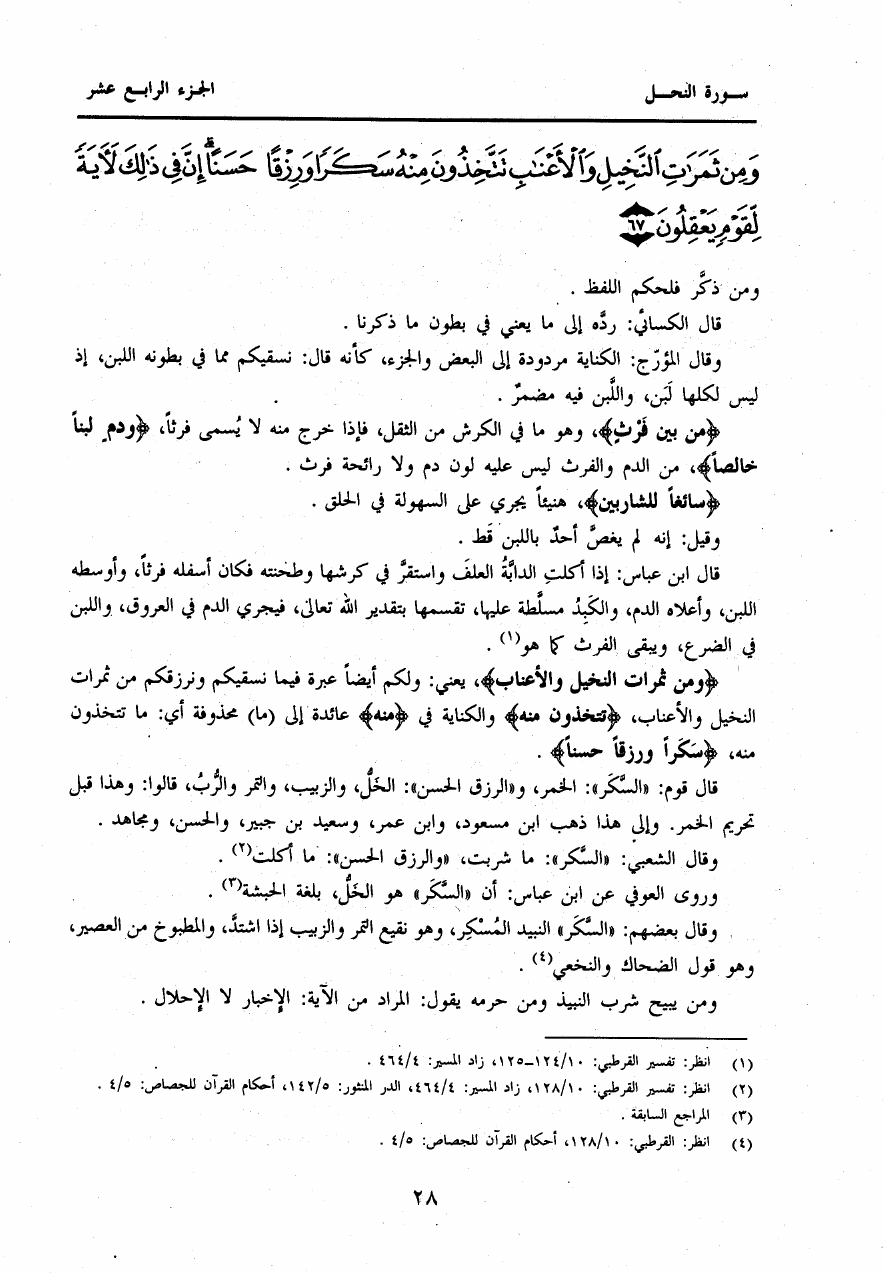 سورة النحل
الجزء الرابع عشر
وَمِن ثَمَرَٰتِ ٱلنَّخِيلِ وَٱلْأَعْنَٰبِ تَتَّخِذُونَ مِنْهُ سَكَرًا وَرِزْقًا حَسَنًا ۗ إِنَّ فِى ذَٰلِكَ لَءَايَةً
لِّقَوْمٍ يَعْقِلُونَ ٦٧
ومن ذكَّر فلحكم اللفظ .
قال الكسائي: ردَّه إلى ما يعني في بطون ما ذكرنا .
وقال المؤرّج: الكناية مردودة إلى البعض والجزء، كأنه قال: نسقيكم مما في بطونه اللبن، إذ
ليس لكلها لَبَن، واللَّبن فيه مضمرٌ .
﴿من بين فَرْثٍ﴾، وهو ما في الكرش من الثقل، فإذا خرج منه لا يُسمى فرثاً، ﴿ودمٍ لبناً
خالصاً﴾، من الدم والفرث ليس عليه لون دم ولا رائحة فرث .
﴿سائغاً للشاربين﴾، هنيئاً يجري على السهولة في الحلق .
وقيل: إنه لم يغصَّ أحدٌ باللبن قَط .
قال ابن عباس: إذا أكلتِ الدابَّةُ العلفَ واستقرَّ في كرشها وطحنته فكان أسفله فرثاً، وأوسطه
اللبن، وأعلاه الدم، والكَبِدُ مسلَّطة عليها، تقسمها بتقدير الله تعالى، فيجري الدم في العروق، واللبن
في الضرع، ويبقى الفرث كما هو(١) .
﴿ومن ثمرات النخيل والأعناب﴾، يعني: ولكم أيضاً عبرة فيما نسقيكم ونرزقكم من ثمرات
النخيل والأعناب، ﴿تتخذون منه﴾ والكناية في ﴿منه﴾ عائدة إلى (ما) محذوفة أي: ما تتخذون
منه، ﴿سَكَراً ورزقاً حسناً﴾ .
قال قوم: «السَّكَر»: الخمر، و«الرزق الحسن»: الخَلُّ، والزبيب، والتمر والرُّبُ، قالوا: وهذا قبل
تحريم الخمر. وإلى هذا ذهب ابن مسعود، وابن عمر، وسعيد بن جبير، والحسن، ومجاهد .
وقال الشعبي: «السَّكر»: ما شربت، «والرزق الحسن»: ما أكلت(٢) .
وروى العوفي عن ابن عباس: أن «السَّكَر» هو الخَلُّ، بلغة الحبشة(٣) .
وقال بعضهم: «السَّكَر» النبيد المُسْكِر، وهو نقيع التمر والزبيب إذا اشتدَّ، والمطبوخ من العصير،
وهو قول الضحاك والنخعي(٤) .
ومن يبيح شرب النبيذ ومن حرمه يقول: المراد من الآية: الإخبار لا الإحلال .
(١) انظر: تفسير القرطبي: ١٢٤/١٠_١٢٥، زاد المسير: ٤٦٤/٤ .
(٢) انظر: تفسير القرطبي: ١٢٨/١٠، زاد المسير: ٤٦٤/٤، الدر المنثور: ١٤٢/٥، أحكام القرآن للجصاص: ٤/٥ .
(٣) المراجع السابقة .
(٤) انظر: القرطبي: ١٢٨/١٠، أحكام القرآن للجصاص: ٤/٥ .
٢٨